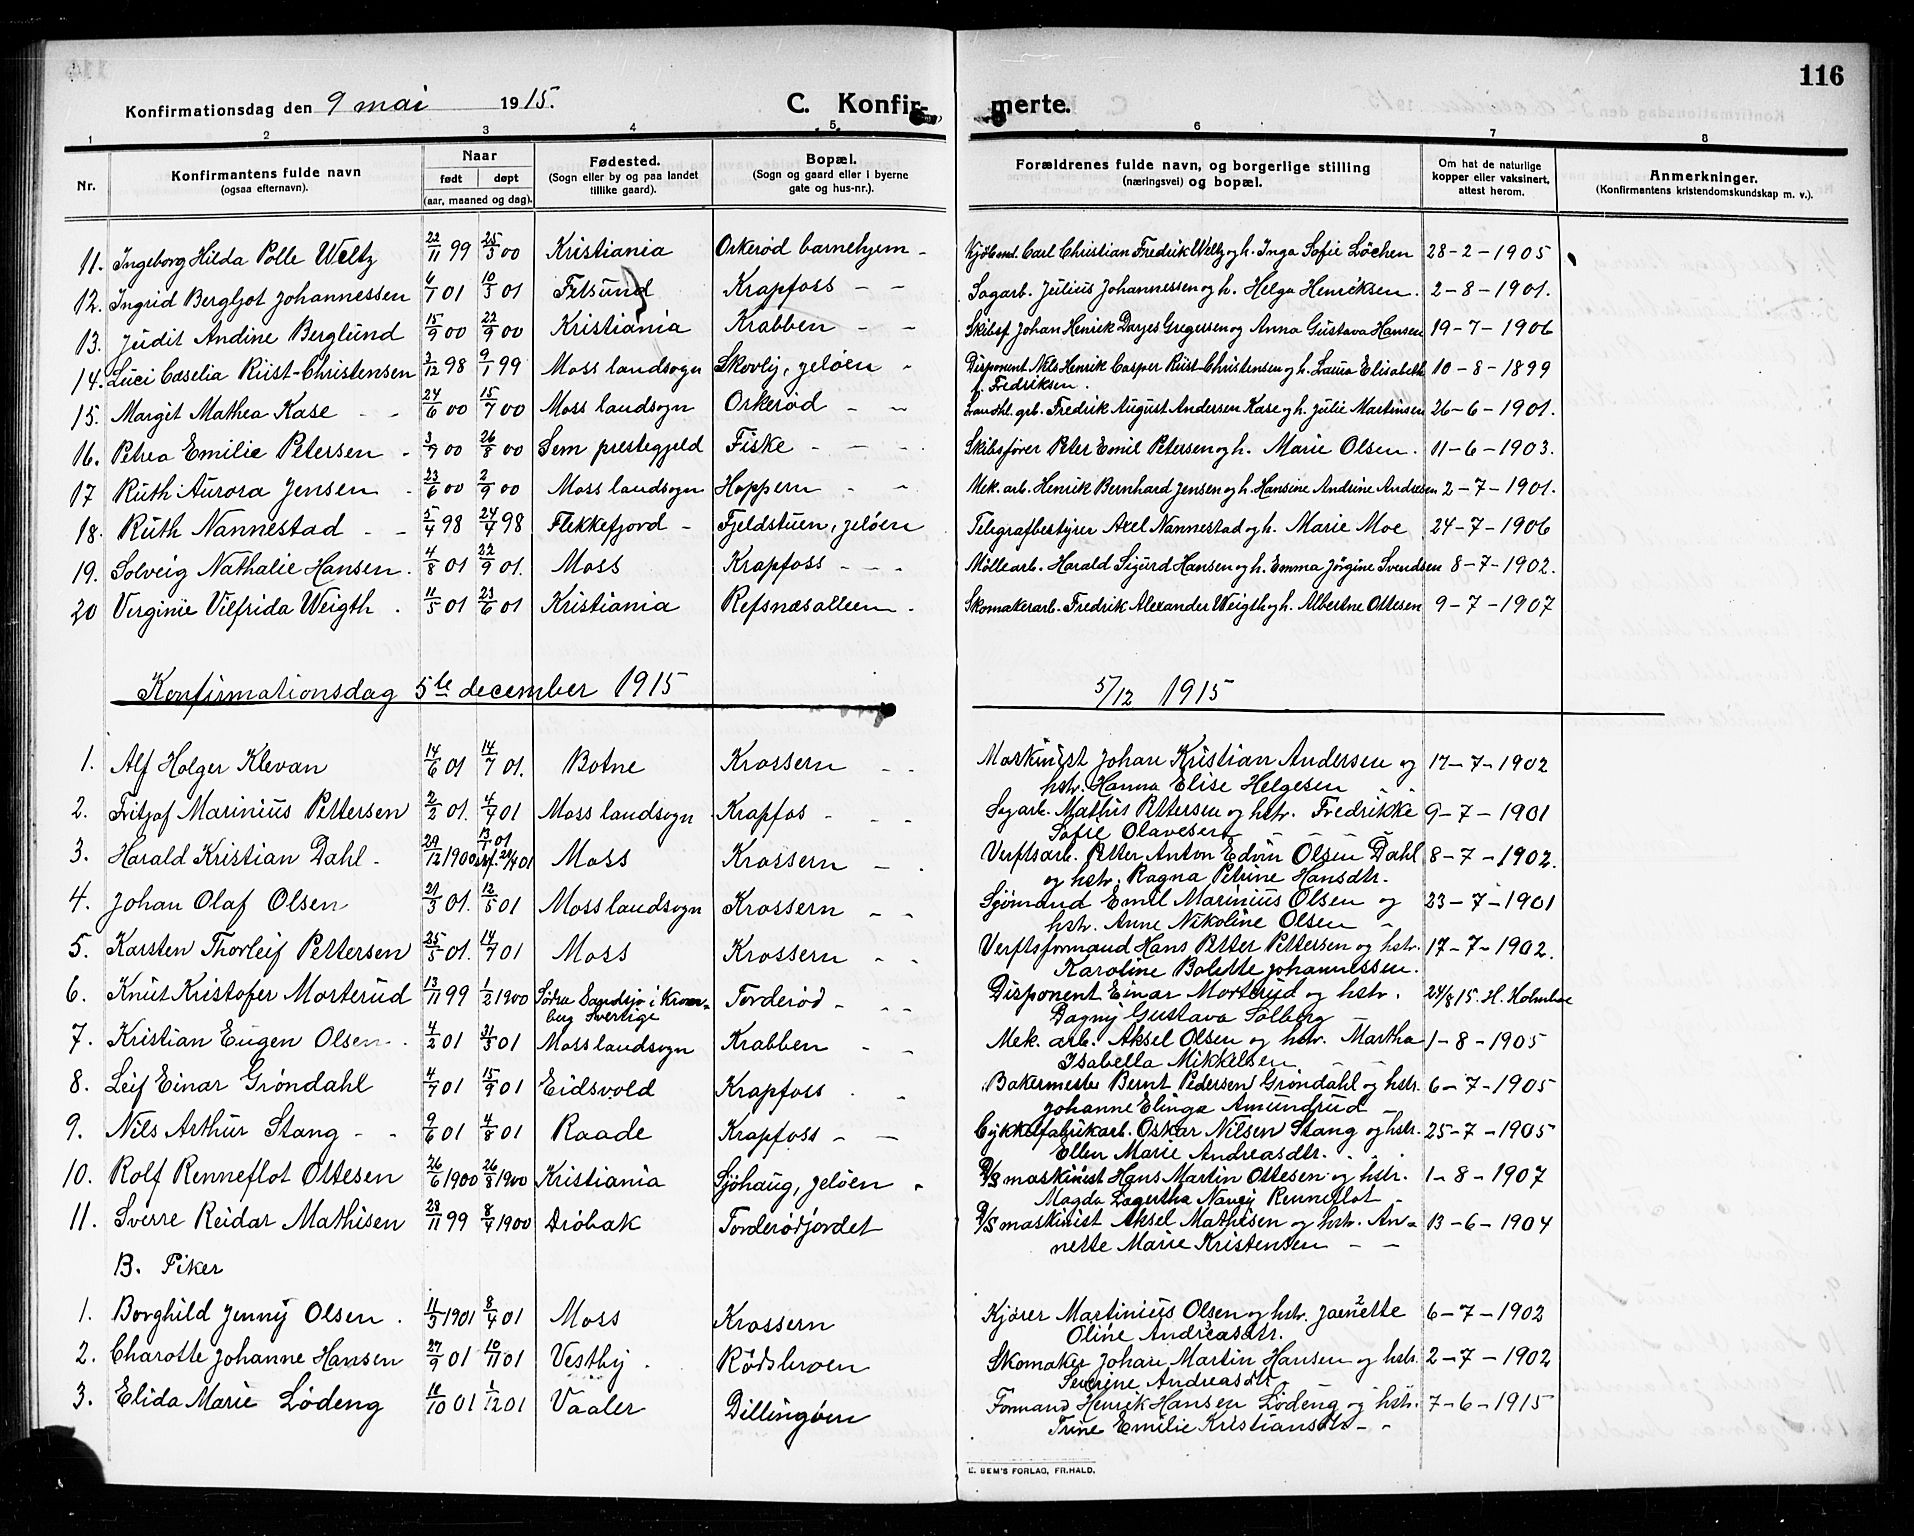 116
Konfirmationsdag den 9 mai 1915. C. Konfirmerte.
1 2 3 4 5 6 7 8
Nr. Konfirmantens fulde navn (ogsaa efternavn). Naar født døpt (aar, maaned og dag). Fødested. (Sogn eller by og paa landet tillike gaard). Bopæl. (Sogn og gaard eller i byerne gate og hus-nr.). Forældrenes fulde navn, og borgerlige stilling (næringsvei) og bopæl. Om hat de naturlige kopper eller vaksinert, attest herom. Anmerkninger. (Konfirmantens kristendomskundskap m. v.).
11. Ingeborg Hilda Polle Weltz 22/11 99 25/3 00 Kristiania Orkerød barnehjem - Kjøbmd. Carl Christian Fredrik Weltz og h. Inga Sofie Løchen 28-2-1905
12. Ingrid Bergljot Johannessen 6/1 01 10/3 01 Fetsund Krapfoss - - Sagarb. Julius Johannessen og h. Helga Henriksen. 2-8-1901.
13. Judit Andine Berglund 15/9 00 22/9 00 Kristiania Krabben - - Skibsf. Johan Henrik Darjes Gregersen og Anna Gustava Hansen 19-7-1906
14. Luci Cæselia Riist-Christensen 3/12 98 9/1 99 Moss landsogn Skovly, Jeløen - Disponent Nils Henrik Casper Riist-Christensen og h. Laura Elisabeth
f. Fredriksen. 10-8-1899
15. Margit Mathea Kase - - 24/6 00 15/7 00 Moss landsogn Orkerød - - Landhl. arb. Fredrik August Andersen Kase og h. Julie Martinsen 26-6-1901.
16. Petrea Emilie Petersen - 3/7 00 26/8 00 Sem prestegjeld Fiske - - - Skibsfører Peter Emil Petersen og h. Marie Olsen. 11-6-1903.
17 Ruth Aurora Jensen - 23/6 00 2/9 00 Moss landsogn Hoppern - - Mek. arb. Henrik Bernhard Jensen og h. Hansine Andrine Andresen 2-7-1901.
18. Ruth Nannestad - - 5/4 98 24/4 98 Flekkefjord - Fjeldstuen, Jeløen Telegrafbestyrer Axel Nannestad og h. Marie Moe 24-7-1906
19. Solveig Nathalie Hansen. 4/8 01 22/9 01. Moss Krapfoss - - - Møllearb. Harald Sigurd Hansen og h. Emma Jørgine Svendsen 8-7-1902.
20 Verginie Vilfrida Weigth. 11/5 01 23/6 01 Kristiania Refsnæsalleen. Skomakerarb. Fredrik Alexander Weigth og h. Albertne Ottesen 9-7-1907
Konfirmationsdag 5te december 1915 5/12 1915
1. Alf Holger Klevan 14/6 01 14/7 01. Botne Krossern - - Maskinist Johan Kristian Andersen og
hstr. Hanna Elise Helgesen 17-7-1902
2. Fritjof Marinius Pettersen 2/2 01. 4/4 01 Moss landsogn Krapfos - - - Sagarb. Mathis Pettersen og hstr. Fredrikke
Sofie Olavesen 9-7-1901
3. Harald Kristian Dahl - 29/12 1900 13/1 01 Moss Krossern - . Verftsarb. Petter Anton Edvin Olsen Dahl
og hstr. Ragna Petrine Hansdtr. 8-7-1902.
4. Johan Olaf Olsen 21/3 01. 12/5 01 Moss landsogn Krossern - - Sjømand Emil Marinius Olsen og
hstr. Anne Nikoline Olsen 23-7-1901
5. Karsten Thorleif Pettersen 25/5 01. 14/7 01 Moss Krossern - - Verftsformand Hans Petter Pettersen og hstr.
Karoline Bolette Johannessen. 17-7-1902.
6. Knut Kristofer Morterud 13/11 99 1/2 1900 Södra Sandsjö i Kronoberg Sverige Torderød - - - Disponent Einar Morterud og hstr.
Dagny Gustava Solberg 24/8 15. H. Holmboe
7. Kristian Eugen Olsen - 4/2 01 31/3 01 Moss landsogn Krabben - Mek. arb. Aksel Olsen og hstr. Martha
Isabella Mikkelsen 1-8-1905
8. Leif Einar Grøndahl 4/7 01 15/9 01 Eidsvold Krapfoss . - Bakermester Bernt Pedersen Grøndahl og hstr.
Johanne Elinga Amundrud 6-7-1905
9. Nils Arthur Stang - - 9/6 01 4/8 01 Raade Krapfoss - - Cykkelfabrikarb. Oskar Nilsen Stang og hstr.
Ellen Marie Andreasdtr. 25-7-1905
10. Rolf Renneflot Ottesen 26/6 1900 26/8 1900 Kristiania Sjøhaug, Jeløen - D/S maskinist Hans Martin Ottesen og hstr.
Magda Lagertha Nancy Renneflot - 1-8-1907
11. Sverre Reidar Mathisen 28/11 99 8/4 1900 Drøbak Torderødjordet D/S maskinist Aksel Mathisen og hstr. An-
nette Marie Kristensen - - 13-6-1904
B. Piker
1. Borghild Jenny Olsen. 11/3 1901 8/4 01 Moss Krossern Kjører Martinius Olsen og hstr. Jaenette
Oline Andreasdtr. 6-7-1902
2. Charotte Johanne Hansen 27/9 01 10/11 01 Vestby. Rødsbroen Skomaker Johan Martin Hansen og hstr.
Severine Andreasdtr. 2-7-1902
3. Elida Marie Lødeng 10/10 01 1/12 01 Vaaler Dillingøen Formand Henrik Hansen Lødeng og hstr.
Trine Emilie Kristiansdtr - - 7-6-1915
E. SEM'S FORLAG, FR.HALD.